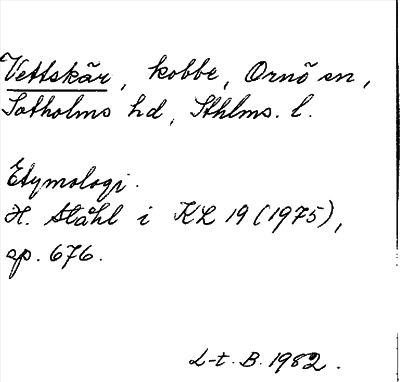 Vettskär, kobbe, Ornö sn,
Sotholms hd, Sthlms. l.
Etymologi.
H. Ståhl i KL 19 (1975),
sp. 676.
L-t. B. 1982.